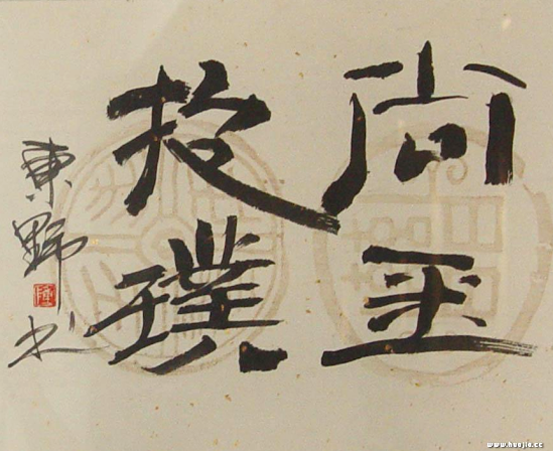 尚玉
投璞
東野书
www.huajia.cc